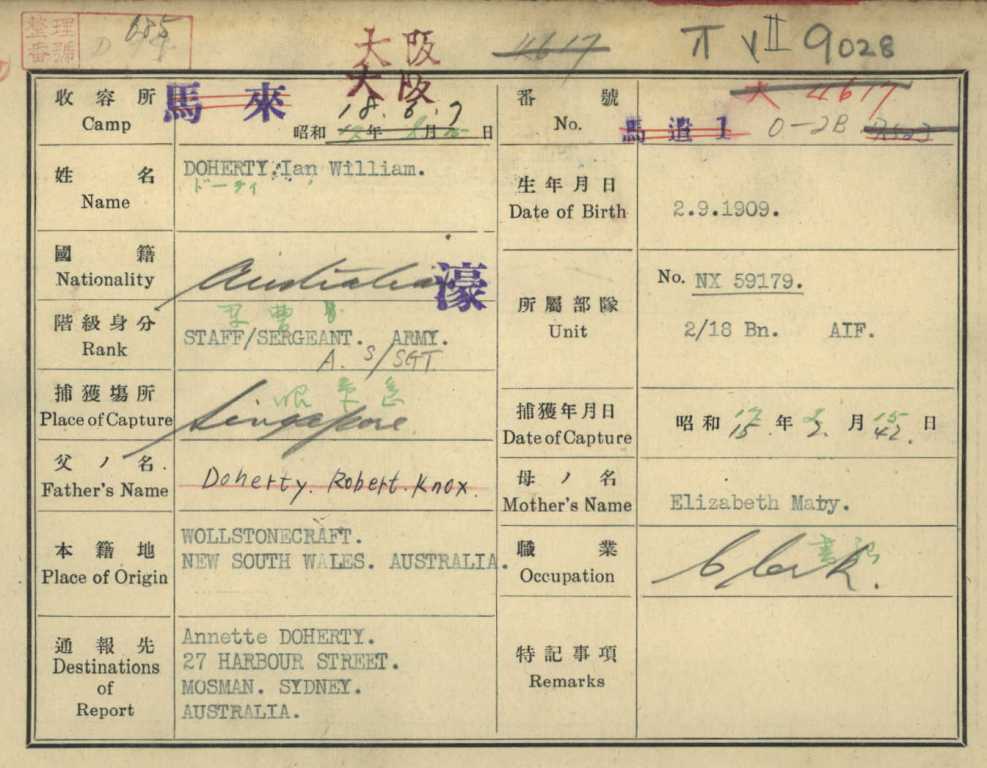 整理番號
685
大阪
4617
π VII 9028
收容所
Camp
馬來
大阪
18. 6. 7
昭和 年 月 日
番號
No.
大 4617
馬遣 1
0-2B
姓名
Name
DOHERTY, Ian William.
ドーティ
生年月日
Date of Birth
2.9.1909.
國籍
Nationality
Australian
濠
所屬部隊
Unit
No. NX 59179.
2/18 Bn. AIF.
階級身分
Rank
STAFF/SERGEANT. ARMY.
A. S/SGT.
捕獲場所
Place of Capture
Singapore
捕獲年月日
Date of Capture
昭和 17 年 2 月 15 日
15. 2. 42.
父ノ名
Father's Name
Doherty. Robert. Knox.
母ノ名
Mother's Name
Elizabeth Mary.
本籍地
Place of Origin
WOLLSTONECRAFT.
NEW SOUTH WALES. AUSTRALIA.
職業
Occupation
Clerk.
書記
通報先
Destinations
of
Report
Annette DOHERTY.
27 HARBOUR STREET.
MOSMAN. SYDNEY.
AUSTRALIA.
特記事項
Remarks